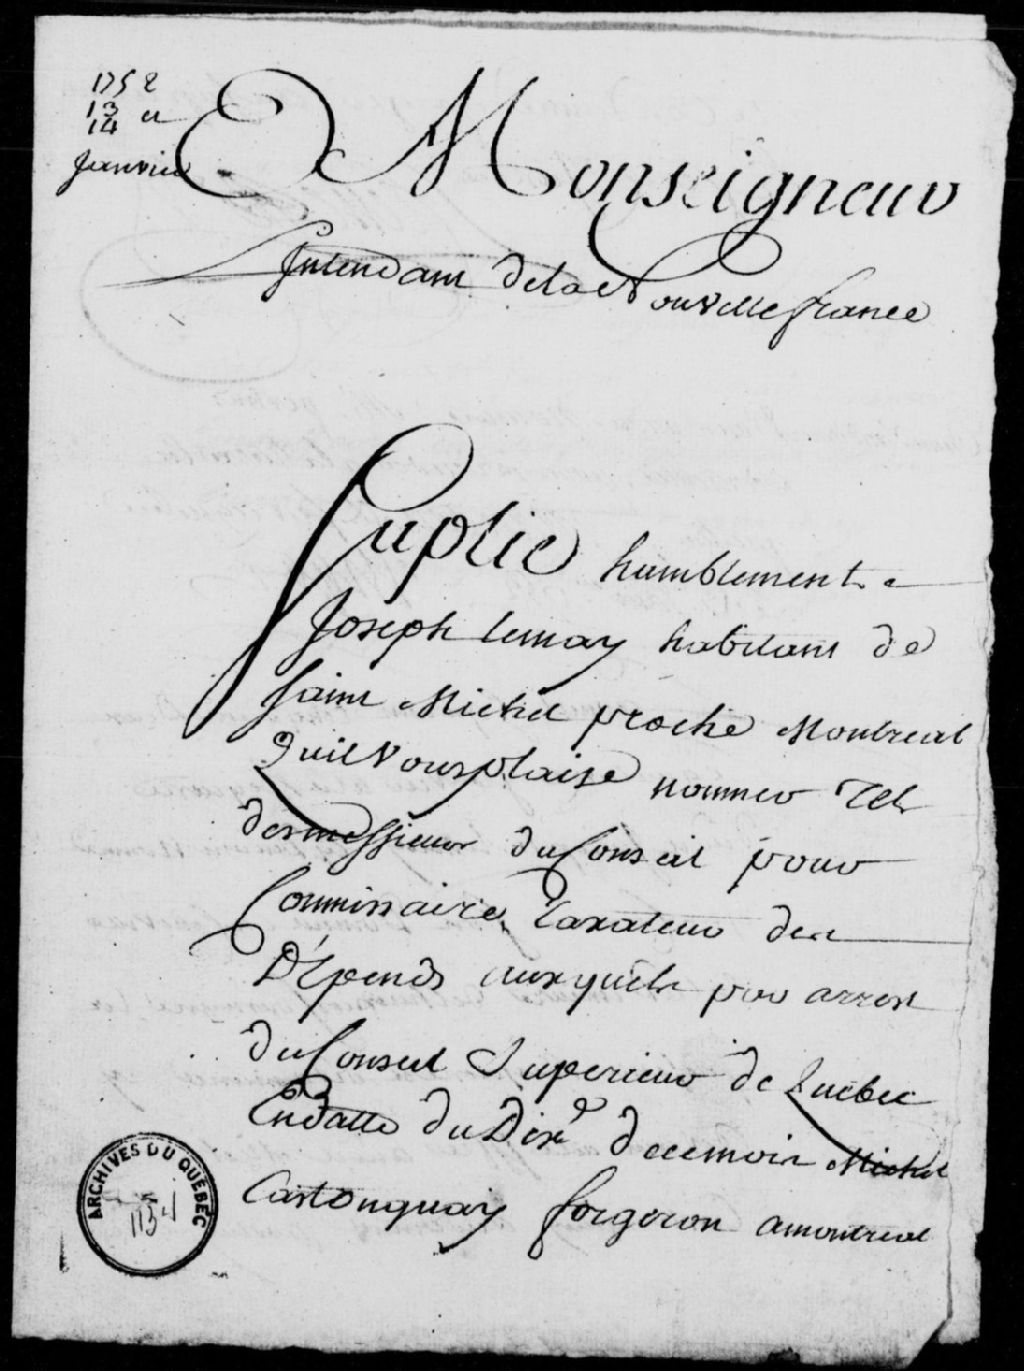 1752
13 et
14
Janvier
A Monseigneur
Intendant dela Nouvelle france
Suplie humblement
Joseph Lemay habitant de
Saint Michel proche Montreal
quil Vous plaise nommer Tel
des messieurs du Conseil pour
Commissaire, taxateur des
Dépends auxquels par arrest
du Conseil Superieur de Quebec
En datte du Dix.e decembre Michel
Castonguay forgeron a montreal
ARCHIVES DU QUÉBEC